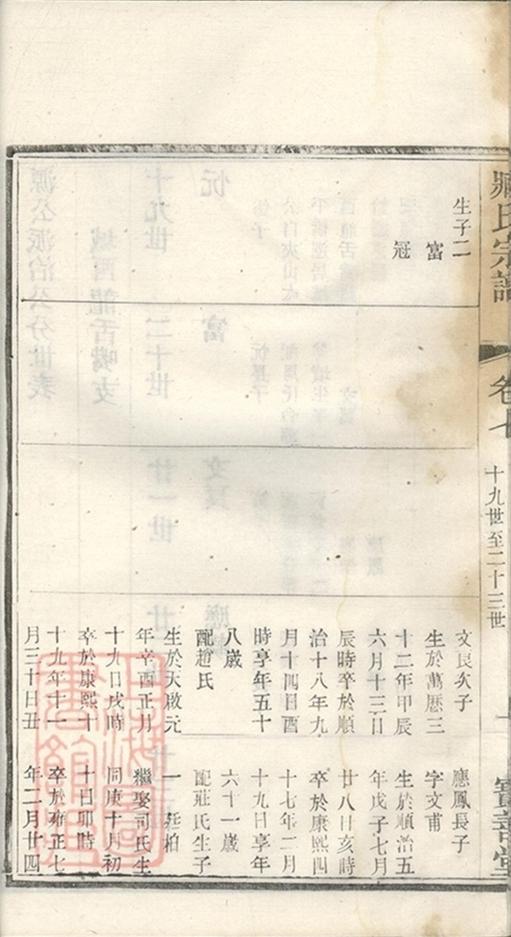 臧氏宗譜
卷七
十九世至二十三世
寶善堂
生子二
富
冠
文良次子
生於萬曆三
十二年甲辰
六月十三日
辰時卒於順
治十八年九
月十四日酉
時享年五十
八歲
配趙氏
生於天啟元
年辛酉正月
十九日戌時
卒於康熙十
十九年十一
月三十日丑
應鳳長子
字文甫
生於順治五
年戊子七月
廿八日亥時
卒於康熙四
十七年二月
十九日享年
六十一歲
配莊氏生子
一 廷柏
繼娶司氏生
同庚十月初
十日卯時
卒於雍正七
年二月廿四